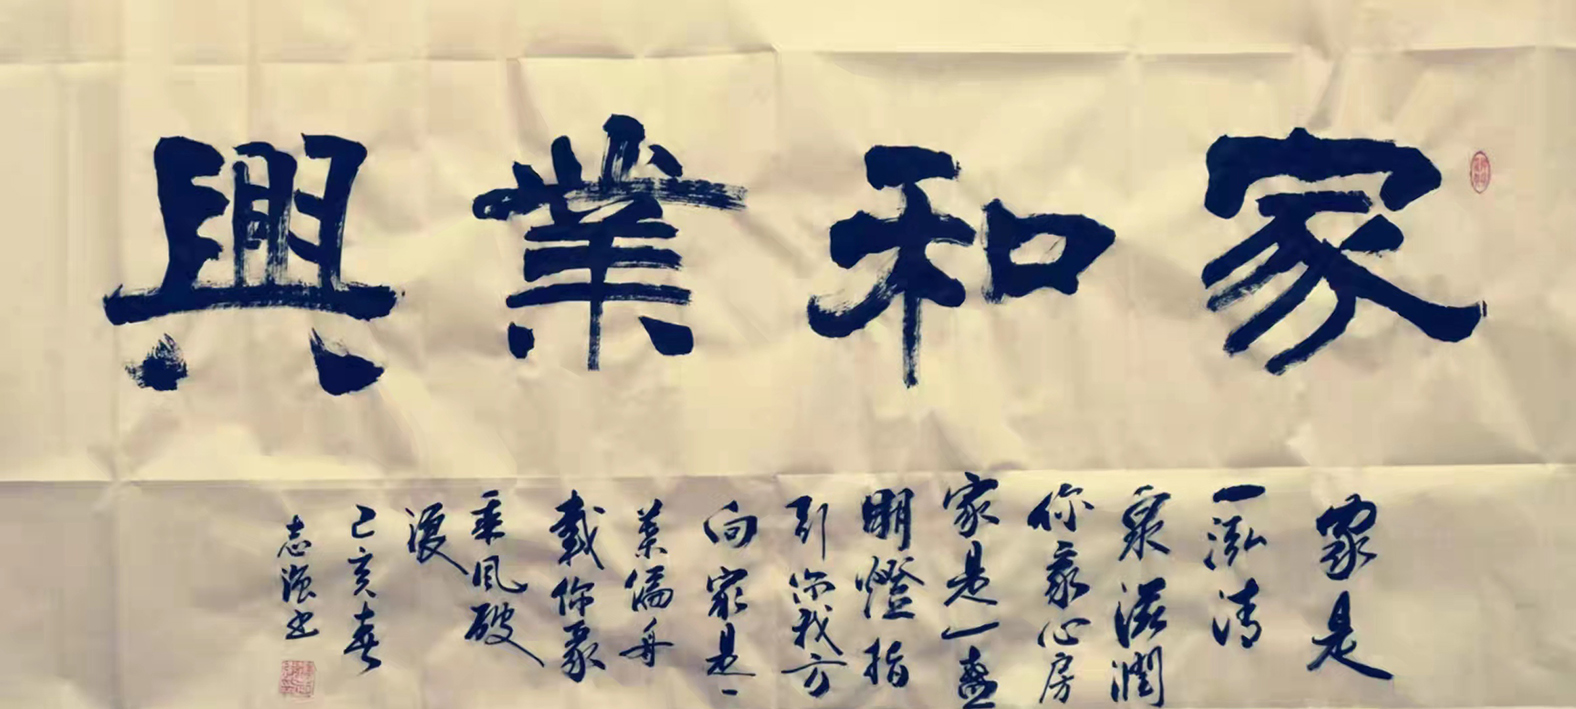 家和業興
家是
一泓清
泉滋潤
你我心房
家是一盞
明燈指
引你我方
向家是一
葉偏舟
載你我
乘風破
浪
己亥春
志强书